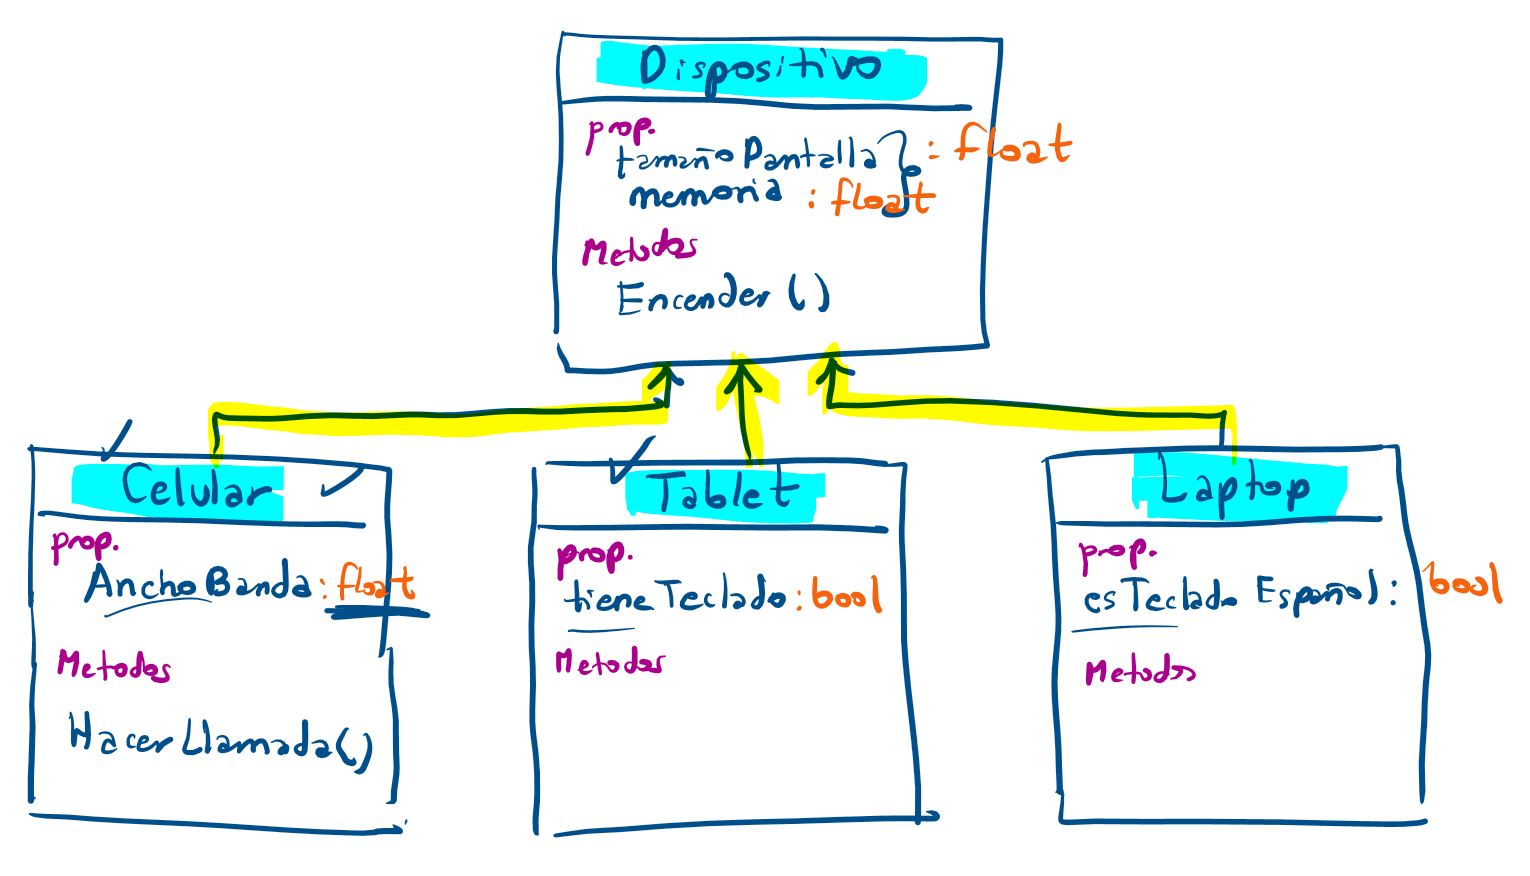 Dispositivo
prop.
tamañoPantalla : float
memoria : float
Metodos
Encender ()
Celular
prop.
AnchoBanda : float
Metodos
HacerLlamada()
Tablet
prop.
tieneTeclado : bool
Metodos
Laptop
prop.
esTecladoEspañol : bool
Metodos